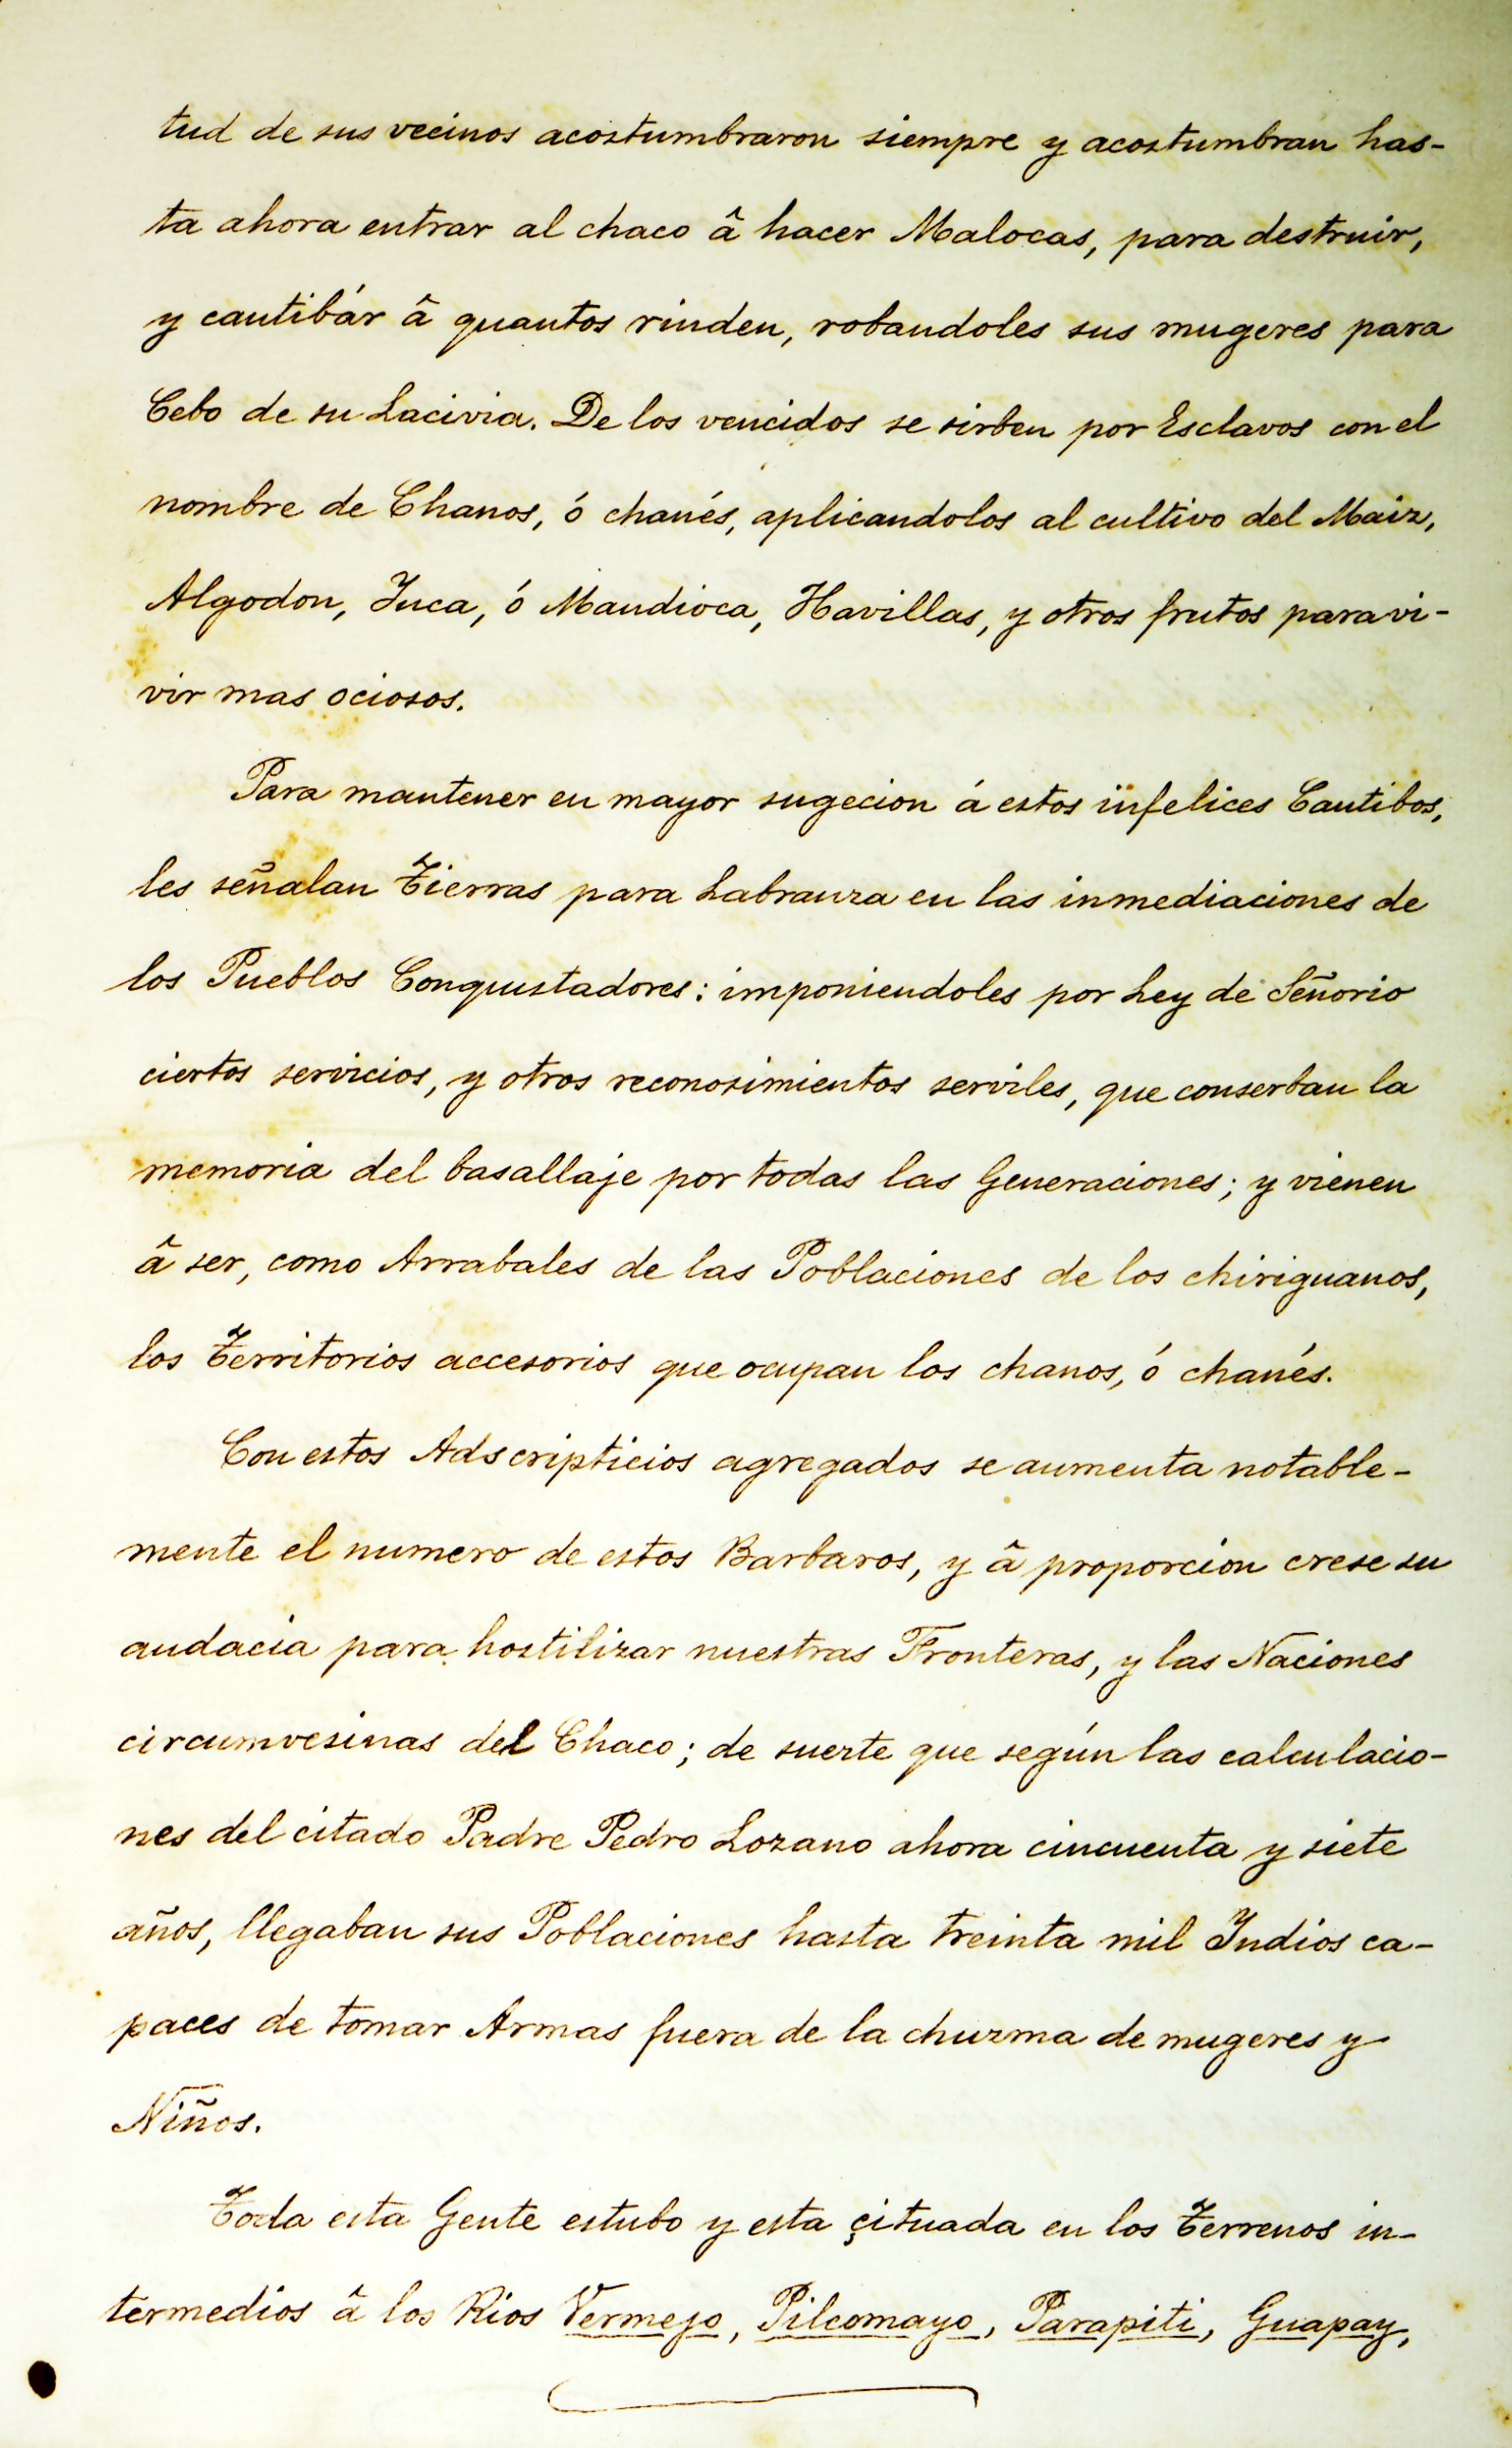 tud de sus vecinos acostumbraron siempre y acostumbran has-
ta ahora entrar al chaco â hacer Malocas, para destruir,
y cautibár â quantos rinden, robandoles sus mugeres para
Cebo de su Lacivia. De los vencidos se sirben por Esclavos con el
nombre de Chanos, ó chanés, aplicandolos al cultivo del Maiz,
Algodon, Yuca, ó Mandioca, Havillas, y otros frutos para vi-
vir mas ociosos.
Para mantener en mayor sugecion á estos infelices Cautibos,
les señalan Tierras para Labranza en las inmediaciones de
los Pueblos Conquistadores: imponiendoles por Ley de Señorio
ciertos servicios, y otros reconosimientos serviles, que conserban la
memoria del basallaje por todas las Generaciones; y vienen
â ser, como Arrabales de las Poblaciones de los chiriguanos,
los Territorios accesorios que ocupan los chanos, ó chanés.
Con estos Adscripticios agregados se aumenta notable-
mente el numero de estos Barbaros, y â proporcion crese su
audacia para hostilizar nuestras Fronteras, y las Naciones
circumvesinas del Chaco; de suerte que según las calculacio-
nes del citado Padre Pedro Lozano ahora cincuenta y siete
años, llegaban sus Poblaciones hasta treinta mil Yndios ca-
paces de tomar Armas fuera de la chuzma de mugeres y
Niños.
Toda esta Gente estubo y esta çituada en los Terrenos in-
termedios â los Rios Vermejo, Pilcomayo, Parapiti, Guapay,